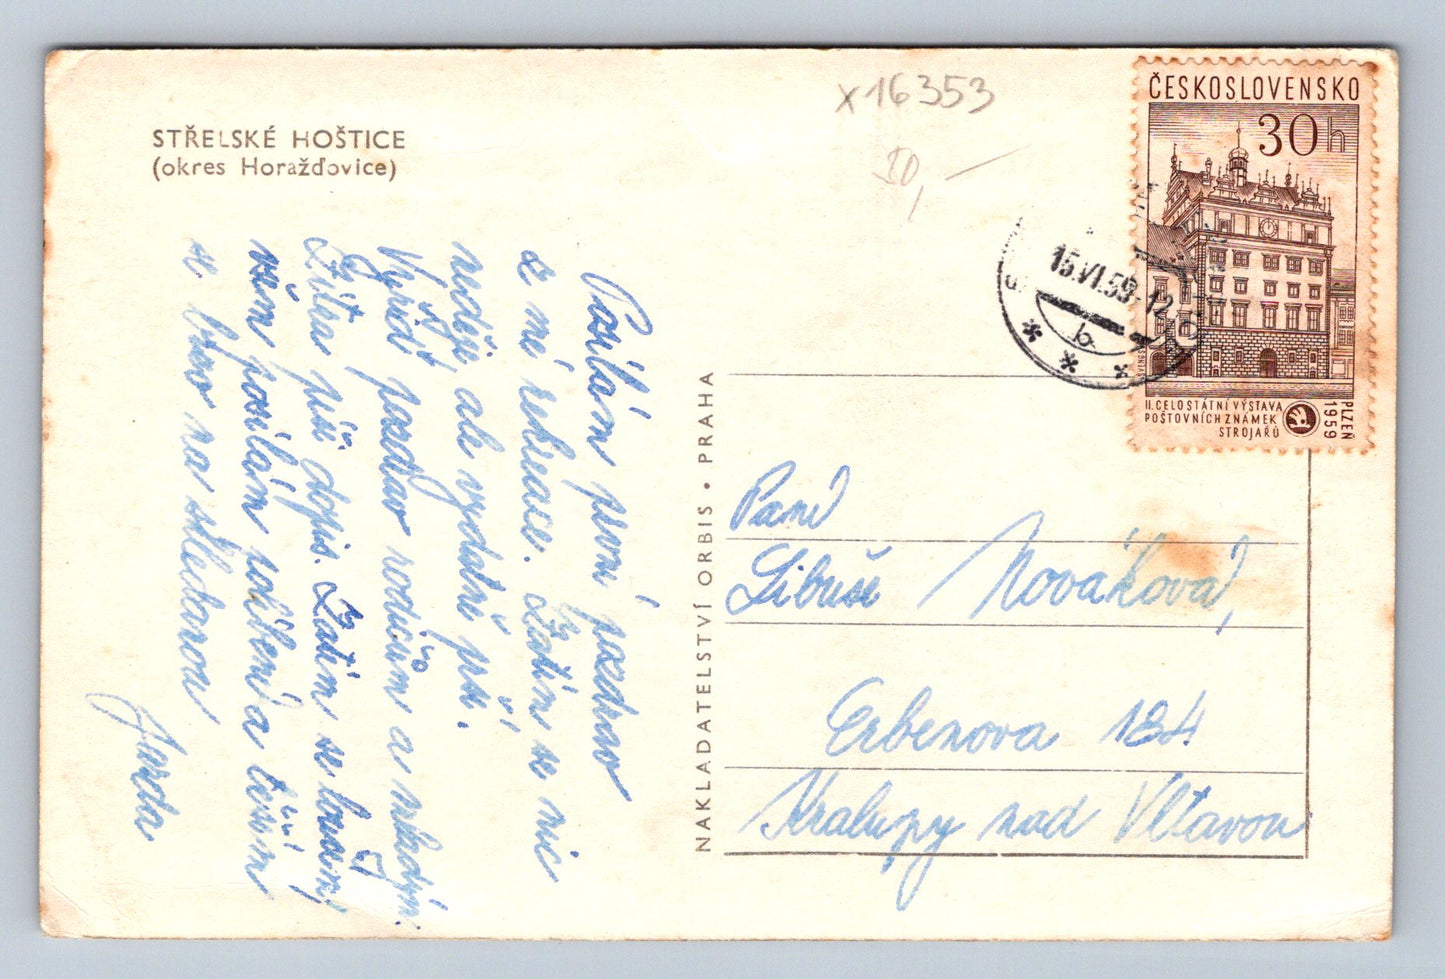 STŘELSKÉ HOŠTICE
(okres Horažďovice)
x16353
50,—
ČESKOSLOVENSKO
30h
II. CELOSTÁTNÍ VÝSTAVA
POŠTOVNÍCH ZNÁMEK
STROJAŘŮ
PLZEŇ
1959
15.VI.59-12
b
Posílám první pozdrav
z mé rekreace. Zatím se nic
neděje, ale vydatně prší.
Vyřiď pozdrav rodičům a
Zítra píši dopis. Zatím se loučí
vám posílám políbení a těším
se brzo na shledanou
Jarda
NAKLADATELSTVÍ ORBIS • PRAHA
Paní
Libuše Nováková,
Erbenova 184
Kralupy nad Vltavou